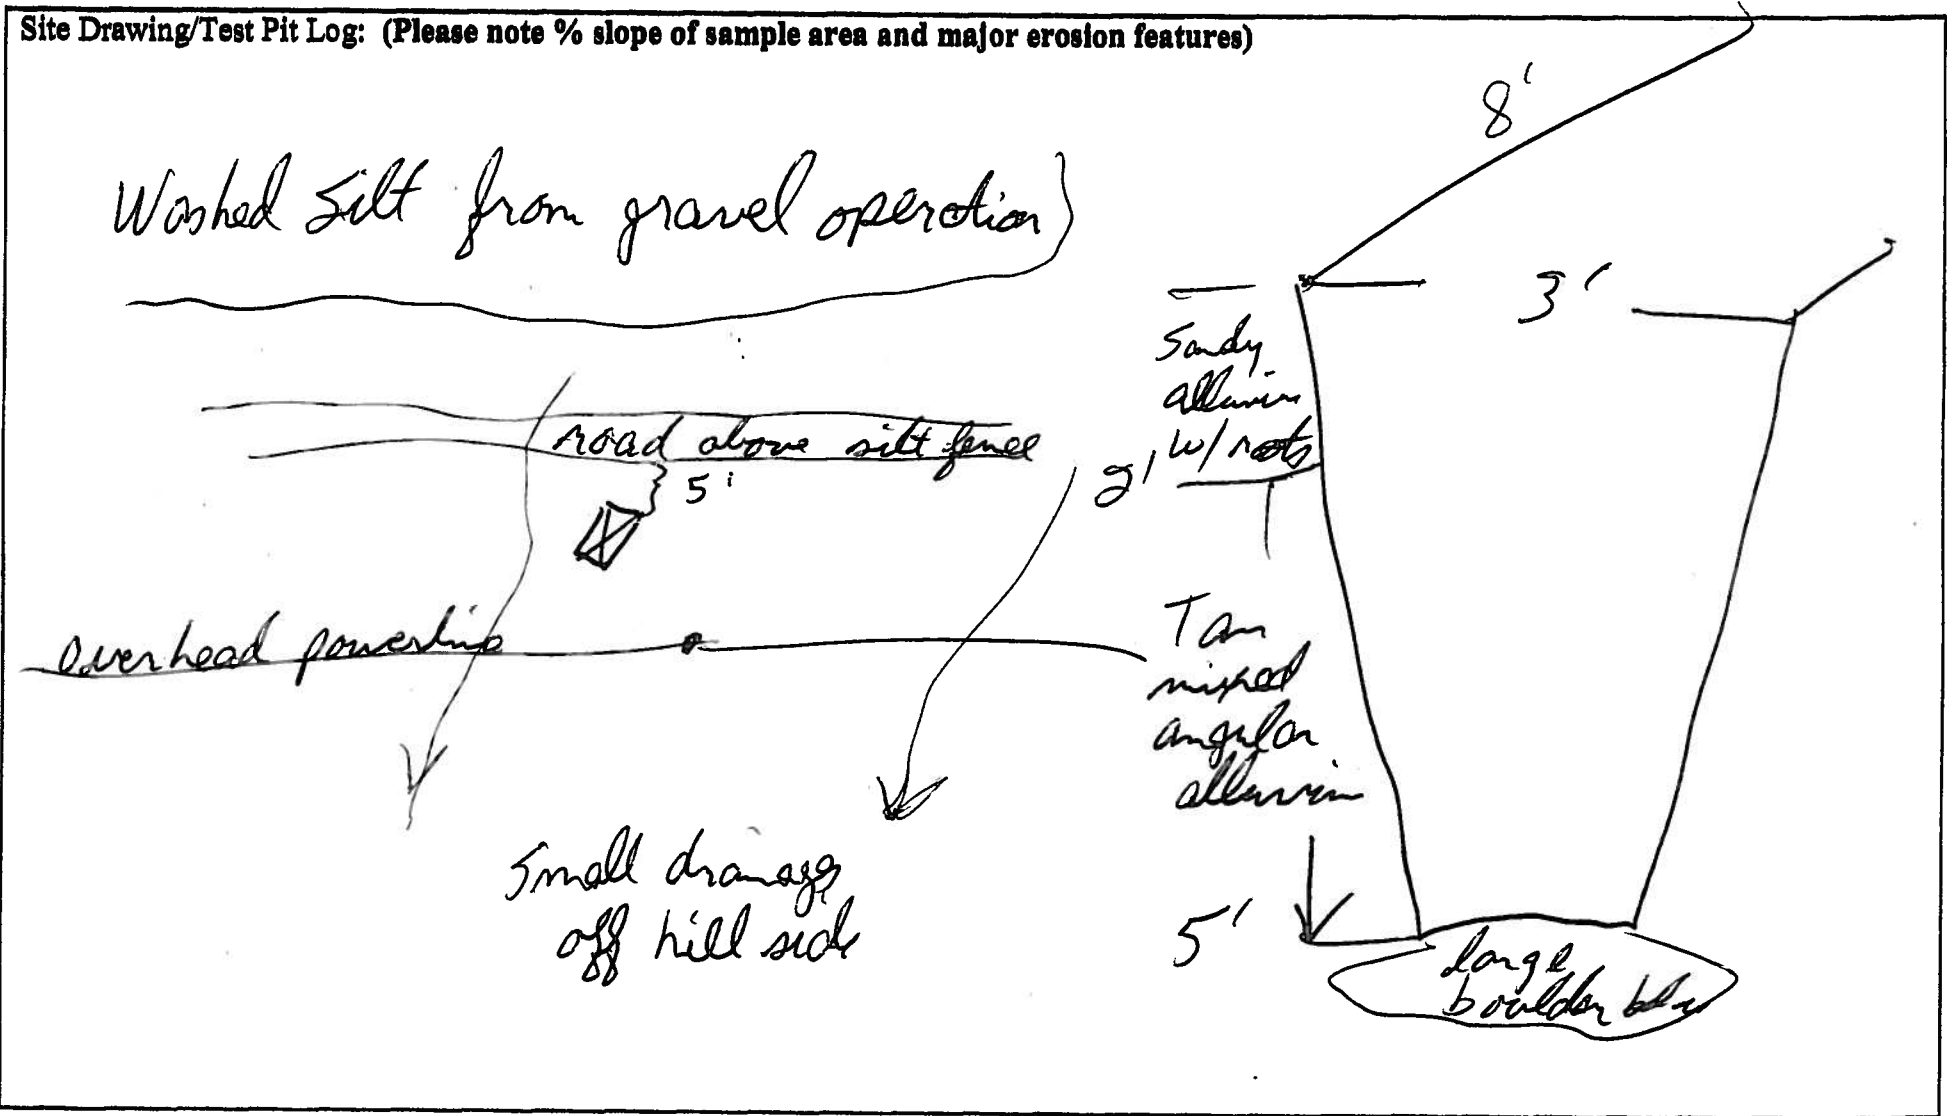 Site Drawing/Test Pit Log: (Please note % slope of sample area and major erosion features)
8'
Washed Silt from gravel operation
3'
Sandy
alluvium
w/ roots
road above silt fence
5'
2'
overhead powerline
Tan
mixed
angular
alluvium
Small drainage
off hill side
5'
large
boulder